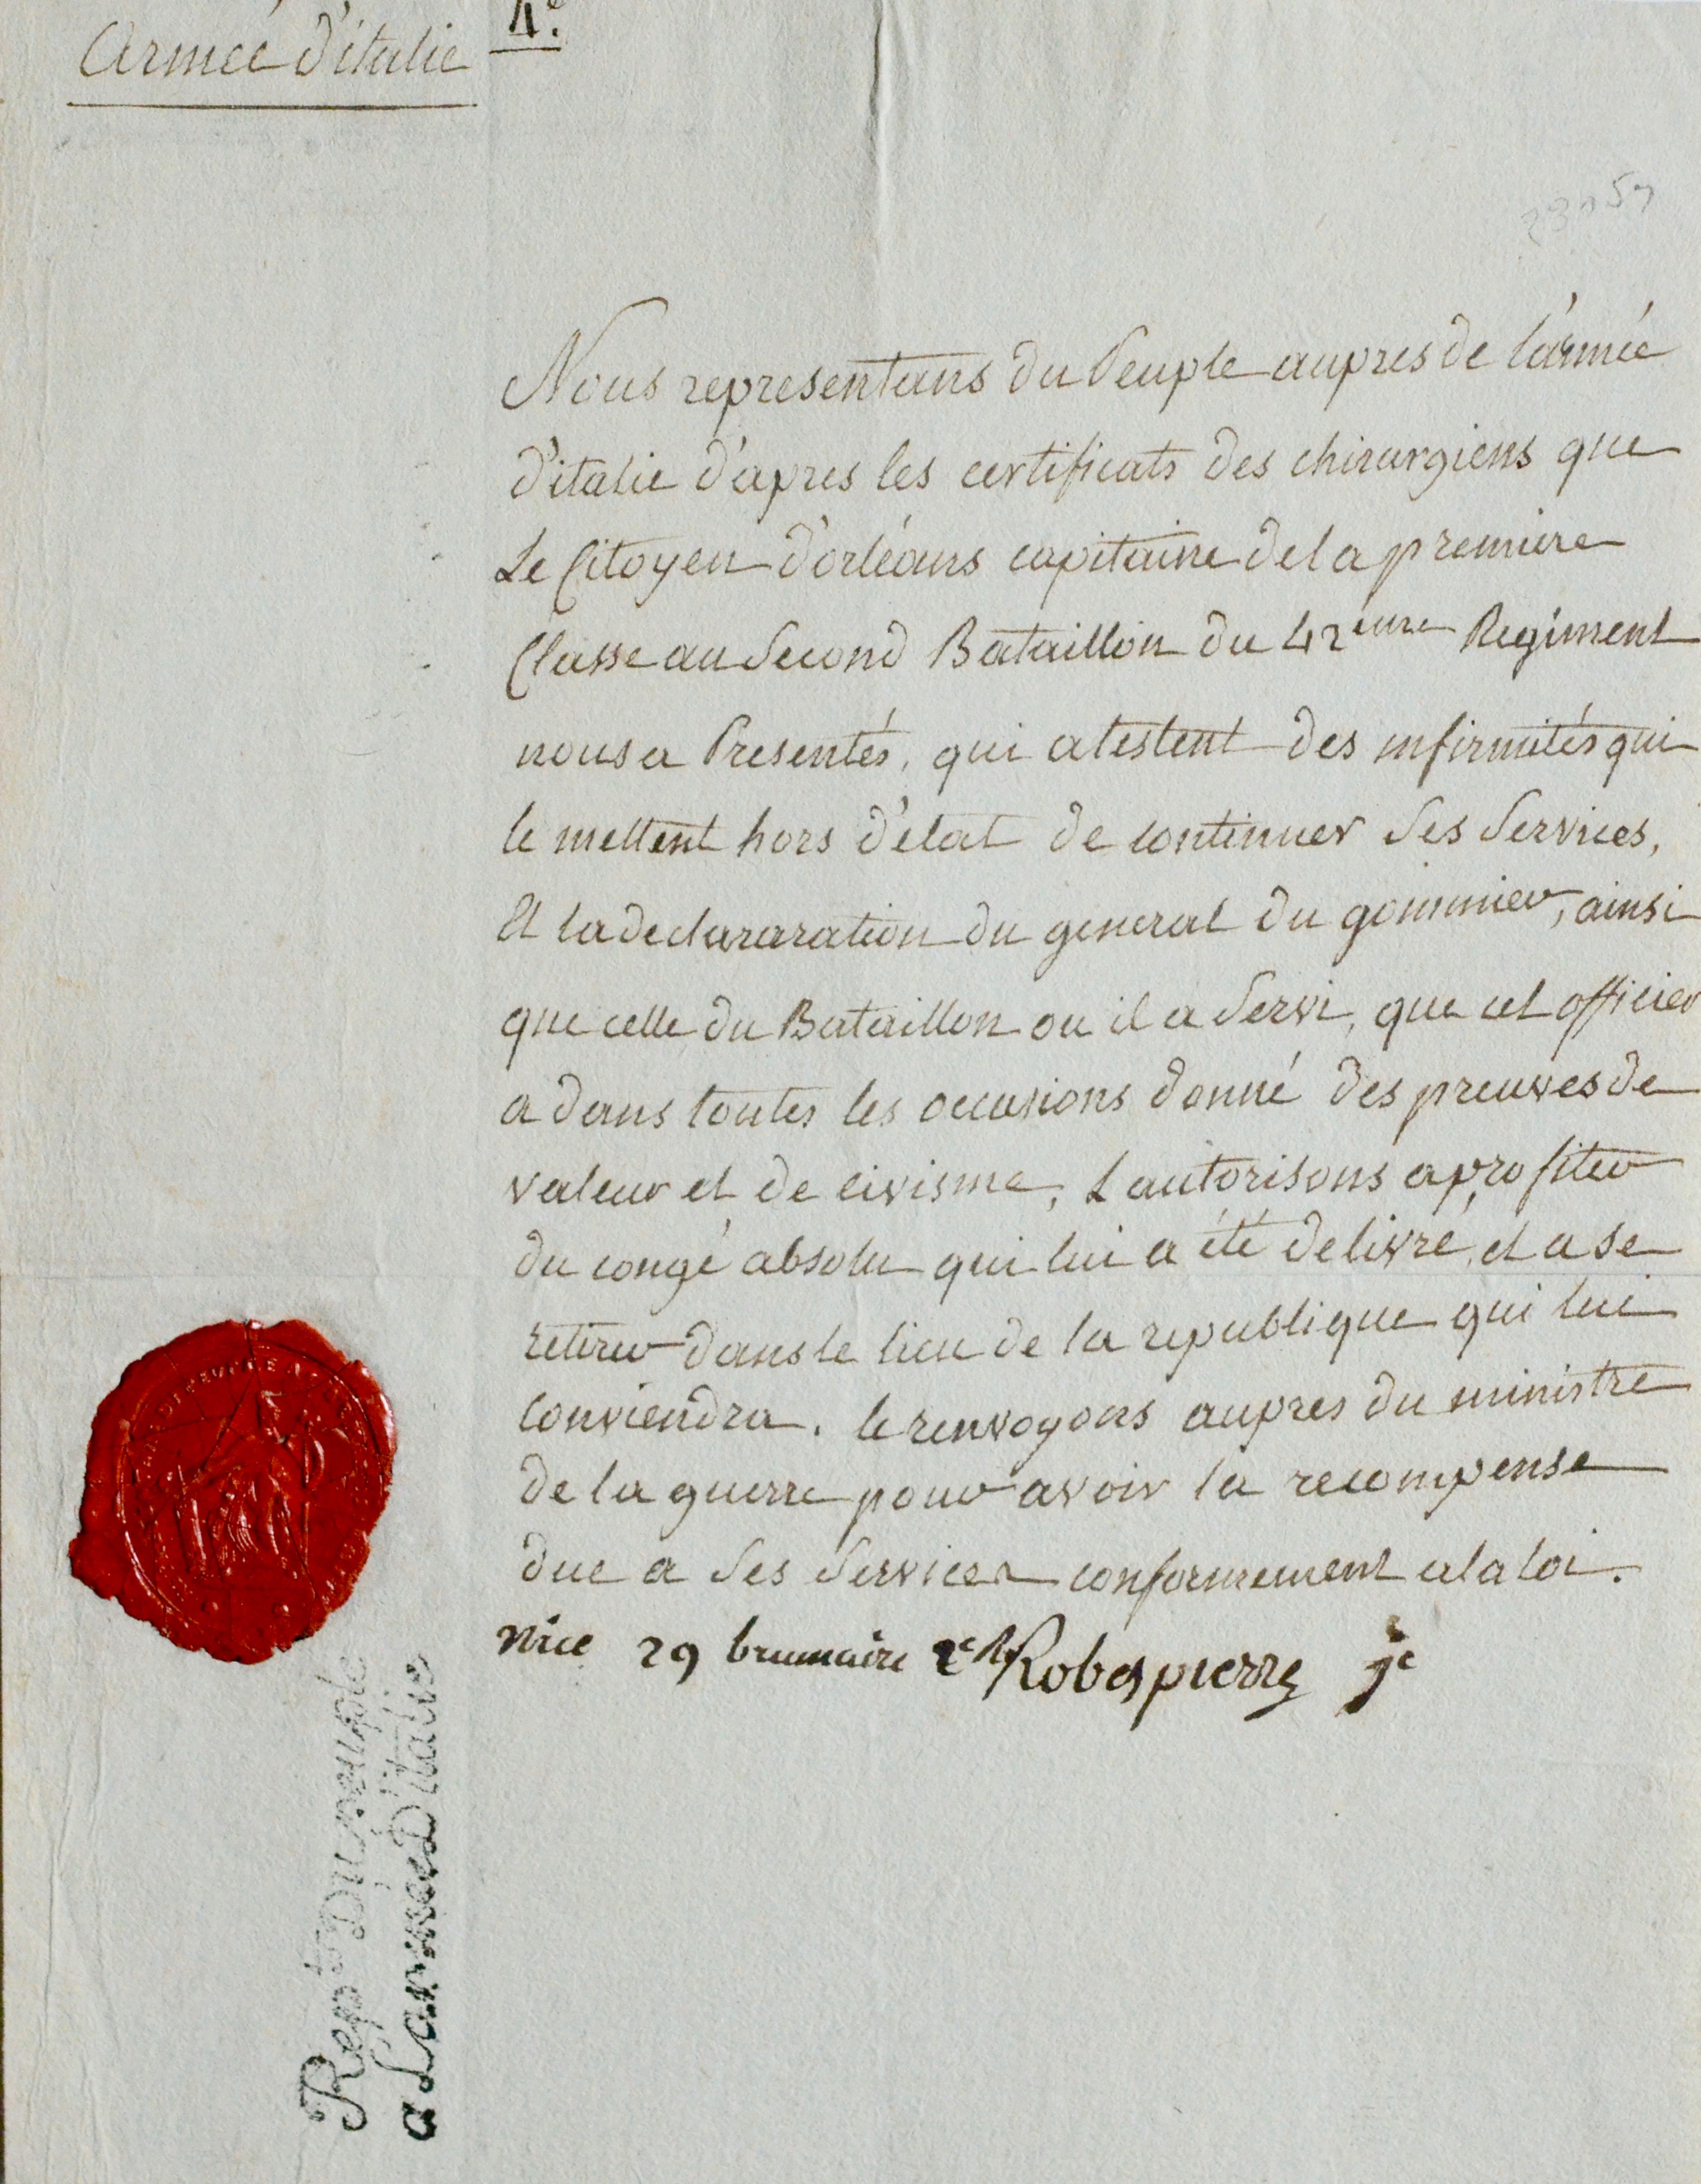 Armée d'italie
4°.
Nous representans du Peuple aupres de l'armée
d'italie d'apres les certificats des chirurgiens que
Le Citoyen d'orléans capitaine de la premiere
Classe au Second Bataillon du 42eme Regiment
nous a Presentés, qui atestent des infirmités qui
le mettent hors d'état de continuer Ses Services,
Et la declararation du general du gommier, ainsi
que celle du Bataillon ou il a Servi, que cet officier
a dans toutes les occasions donné des preuves de
valeur et de civisme, L'autorisons a profiter
du congé absolu qui lui a été delivré, et a se
retirer dans le lieu de la republique qui lui
conviendra. le renvoyons aupres du ministre
de la guerre pour avoir la recompense
due a Ses Services conformement a la loi.
Nice 29 brumaire 2e Robespierre je
Représ. du Peuple
a L'armée d'Italie